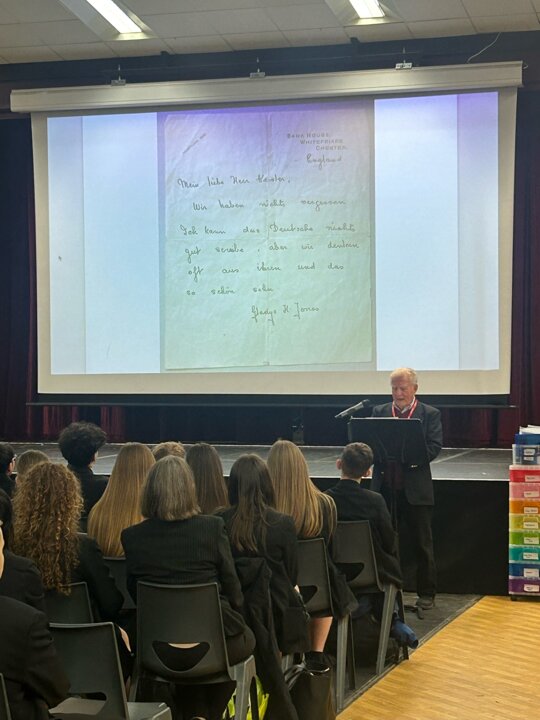 BANK HOUSE,
WHITEFRIARS
CHESTER.
England
Mein liebe Herr
Wir haben nichts vergessen
Ich kann das Deutsche nichts
gut screibe, aber wir denken
oft aus ihnen und das
so schön sehn
Gladys H Jonas